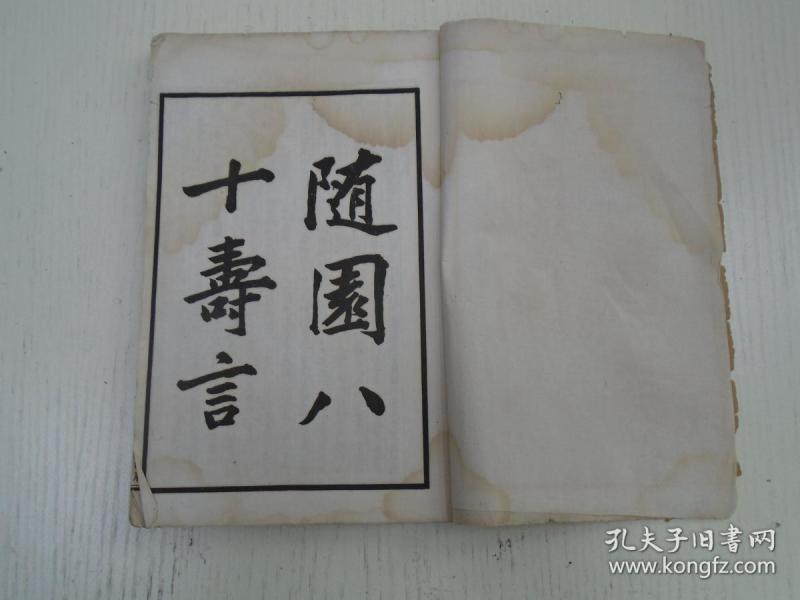 随園八
十壽言
孔夫子旧書网
www.kongfz.com